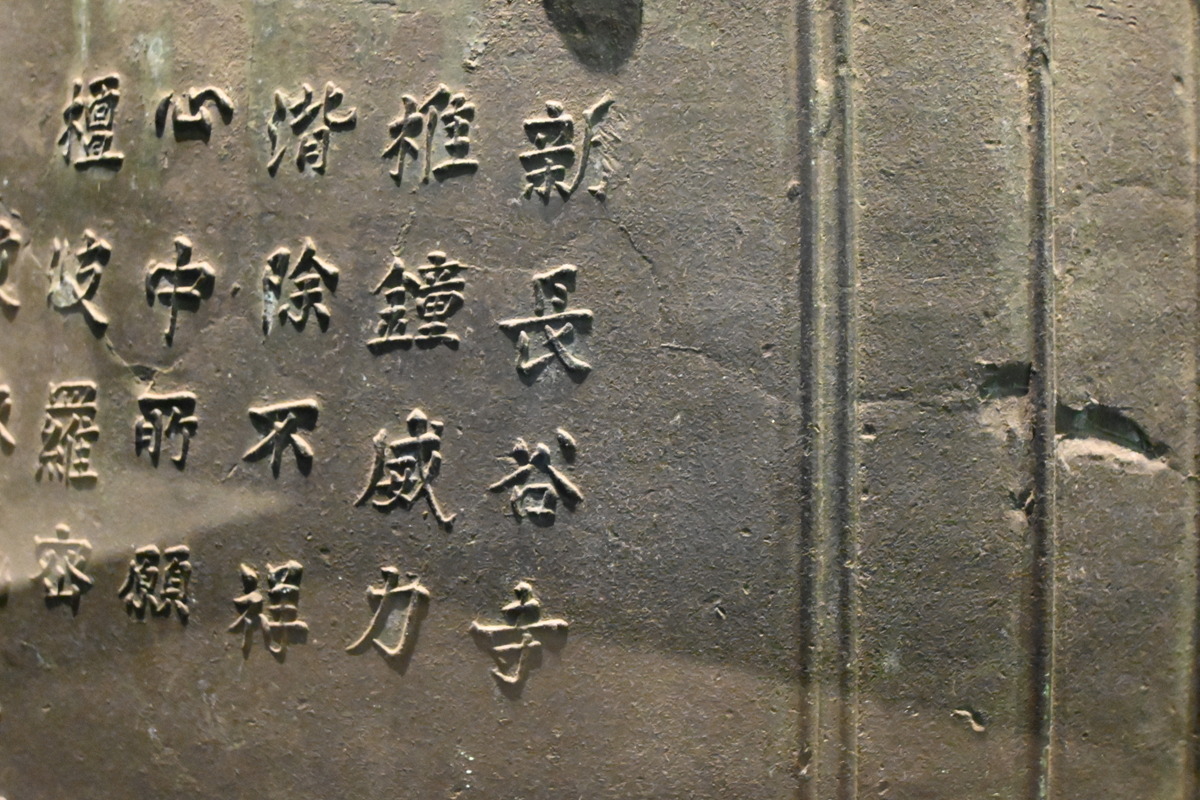 新長谷寺
椎鐘威力
除不祥
心中所願
檀波羅密